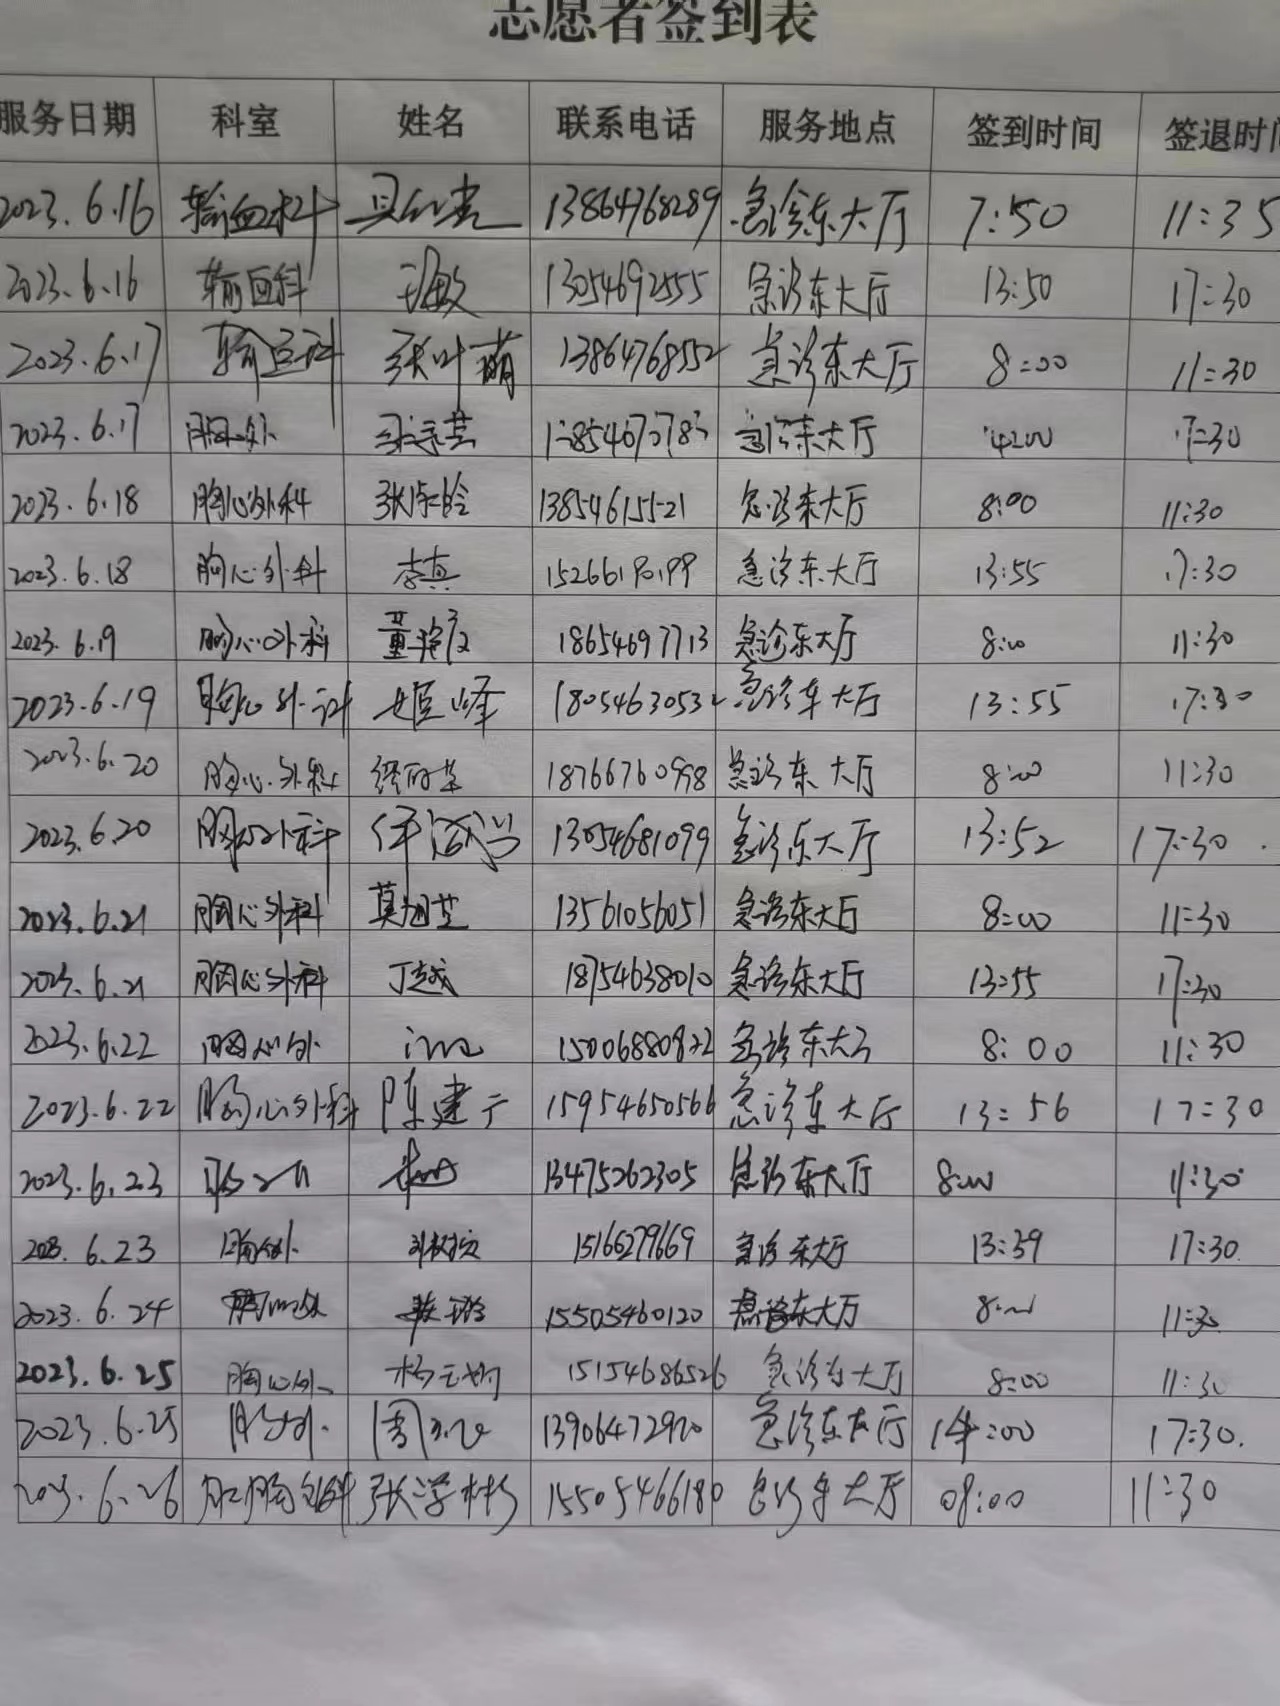 志愿者签到表
服务日期 科室 姓名 联系电话 服务地点 签到时间 签退时间
2023.6.16 输血科 13864768289 急诊东大厅 7:50 11:35
2023.6.16 输血科 王敏 13054692555 急诊东大厅 13:50 17:30
2023.6.17 输血科 张叶萌 13864768552 急诊东大厅 8:00 11:30
2023.6.17 胸外 急诊东大厅 17:30
2023.6.18 胸心外科 13854615521 急诊东大厅 8:00 11:30
2023.6.18 胸心外科 李真 急诊东大厅 13:55 17:30
2023.6.19 胸心外科 18654697713 急诊东大厅 8:00 11:30
2023.6.19 胸心外科 姬峰 18054630532 急诊东大厅 13:55 17:30
2023.6.20 胸心外科 18766760998 急诊东大厅 8:00 11:30
2023.6.20 胸心外科 13054681099 急诊东大厅 13:52 17:30
2023.6.21 胸心外科 13561056051 急诊东大厅 8:00 11:30
2023.6.21 胸心外科 丁越 18754638010 急诊东大厅 13:55 17:30
2023.6.22 胸心外 15006880822 急诊东大厅 8:00 11:30
2023.6.22 胸心外科 陈建广 15954650566 急诊东大厅 13:56 17:30
2023.6.23 13475262305 急诊东大厅 8:00 11:30
2023.6.23 胸外 15166279669 急诊东大厅 13:39 17:30
2023.6.24 15505460120 急诊东大厅 8:00 11:30
2023.6.25 胸心外 15154686526 急诊东大厅 8:00 11:30
2023.6.25 胸外 13906472920 急诊东大厅 14:00 17:30
2023.6.26 张学彬 15505466180 急诊东大厅 08:00 11:30